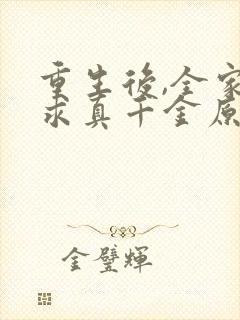 重生後,全家
求真千金原
金璧輝